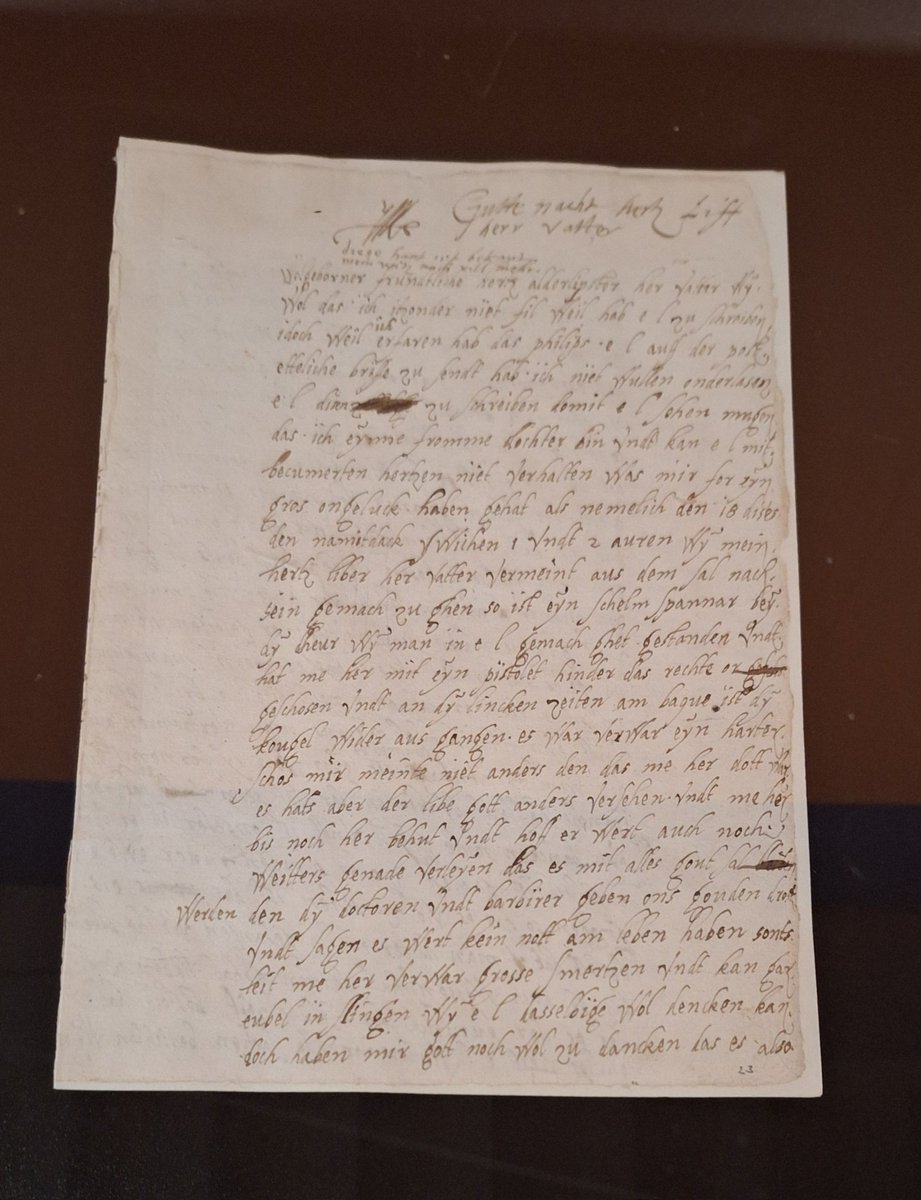 Gutte nacht hertz liff
herr vatter
diese hant ist bekant
mein hertz noch vill mehr.
Wolgeborner frundtliche hertz alderlipster her vatter wÿ
wol das ich itzonder niet fil weil hab e l zu schreiben
idoch weil ich erfaren hab das philips e l auf der post
etteliche brife zu sendt hab ich niet wullen onderlasen
e l zu schreiben domit e l sehen mugen
das ich eÿnne fromme dochter bin undt kan e l mit
becumerten hertzen niet verhalten was mir for eÿn
gros ongeluck haben gehat als nemelich den 18 dises
den namitdack zwischen 1 undt 2 auren wÿ mein
hertz liber her vatter vermeint aus dem sal nach
sein gemach zu ghen so ist eÿn schelm spannar beÿ
dÿ theur wÿ man in e l gemach ghet gestanden undt
hat me her mit eÿn pistolet hinder das rechte or
geschosen undt an dÿ lincken zeiten am baque ist dÿ
kougel wider aus gangen es war verwar eÿn harter
schos mir meinte niet anders den das me her dott war
es hats aber der libe gott anders versehen undt me her
bis noch her behut undt hoff er wert auch noch
weitters genade verleÿen das es mit alles gout sal
werden den dÿ doctoren undt barbirer geben ons gouden trost
undt sagen es wert kein nott am leben haben sonts
leit me her verwar grosse smertzen undt kan gar
eubel in slingen wÿ e l dasselbige wol dencken kan
doch haben mir gott noch wol zu dancken das es also
23